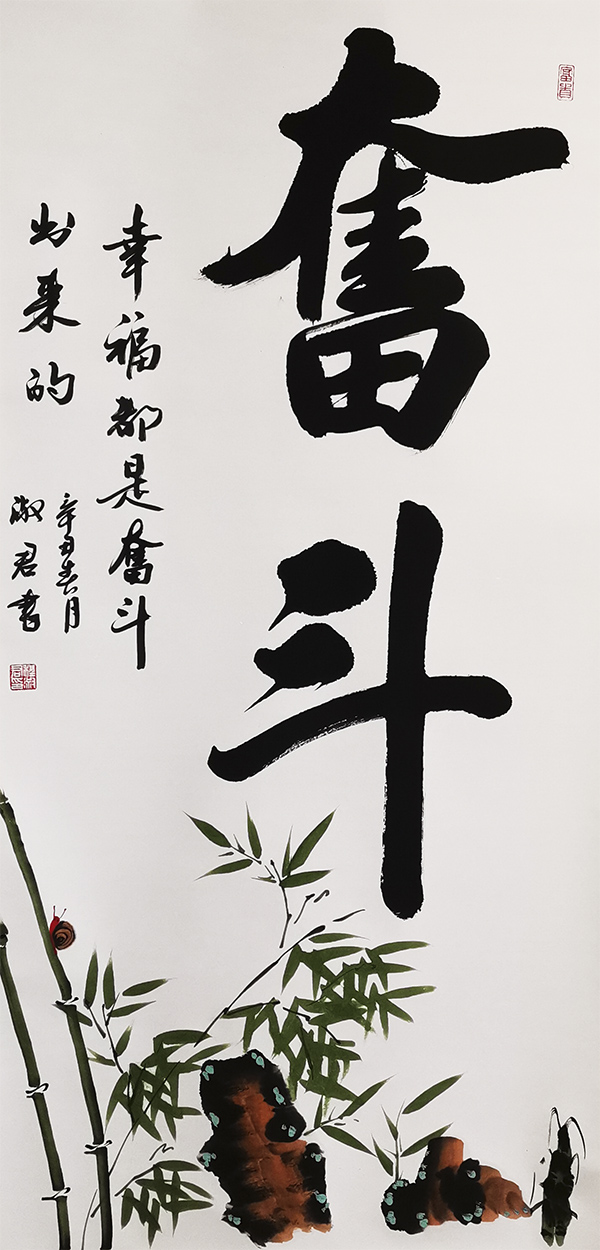 奮斗
幸福都是奮斗
出来的
辛丑春月
淑君書
富貴